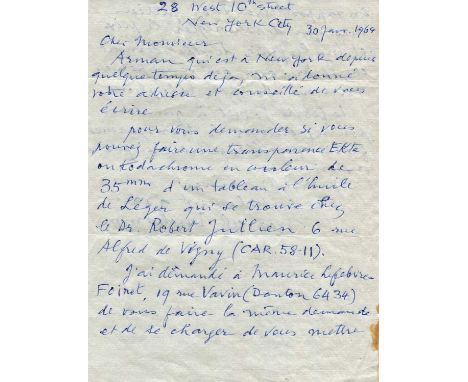 28 West 10th street
New York City 30 janv. 1964
Cher Monsieur
Arman qui est à New York depuis
quelque temps deja, m'a donné
votre adresse et conseillé de vous
écrire
pour vous demander si vous
pouvez faire une transparence Ekta
ou Kodachrome en couleur de
35mm d'un tableau à l'huile
de Léger qui se trouve chez
le Dr. Robert Jullien 6 rue
Alfred de Vigny (CAR. 58-11).
J'ai demandé à Maurice Lefebvre-
Foinet, 19 rue Vavin (Danton 6434)
de vous faire la même demande
et de se charger de vous mettre